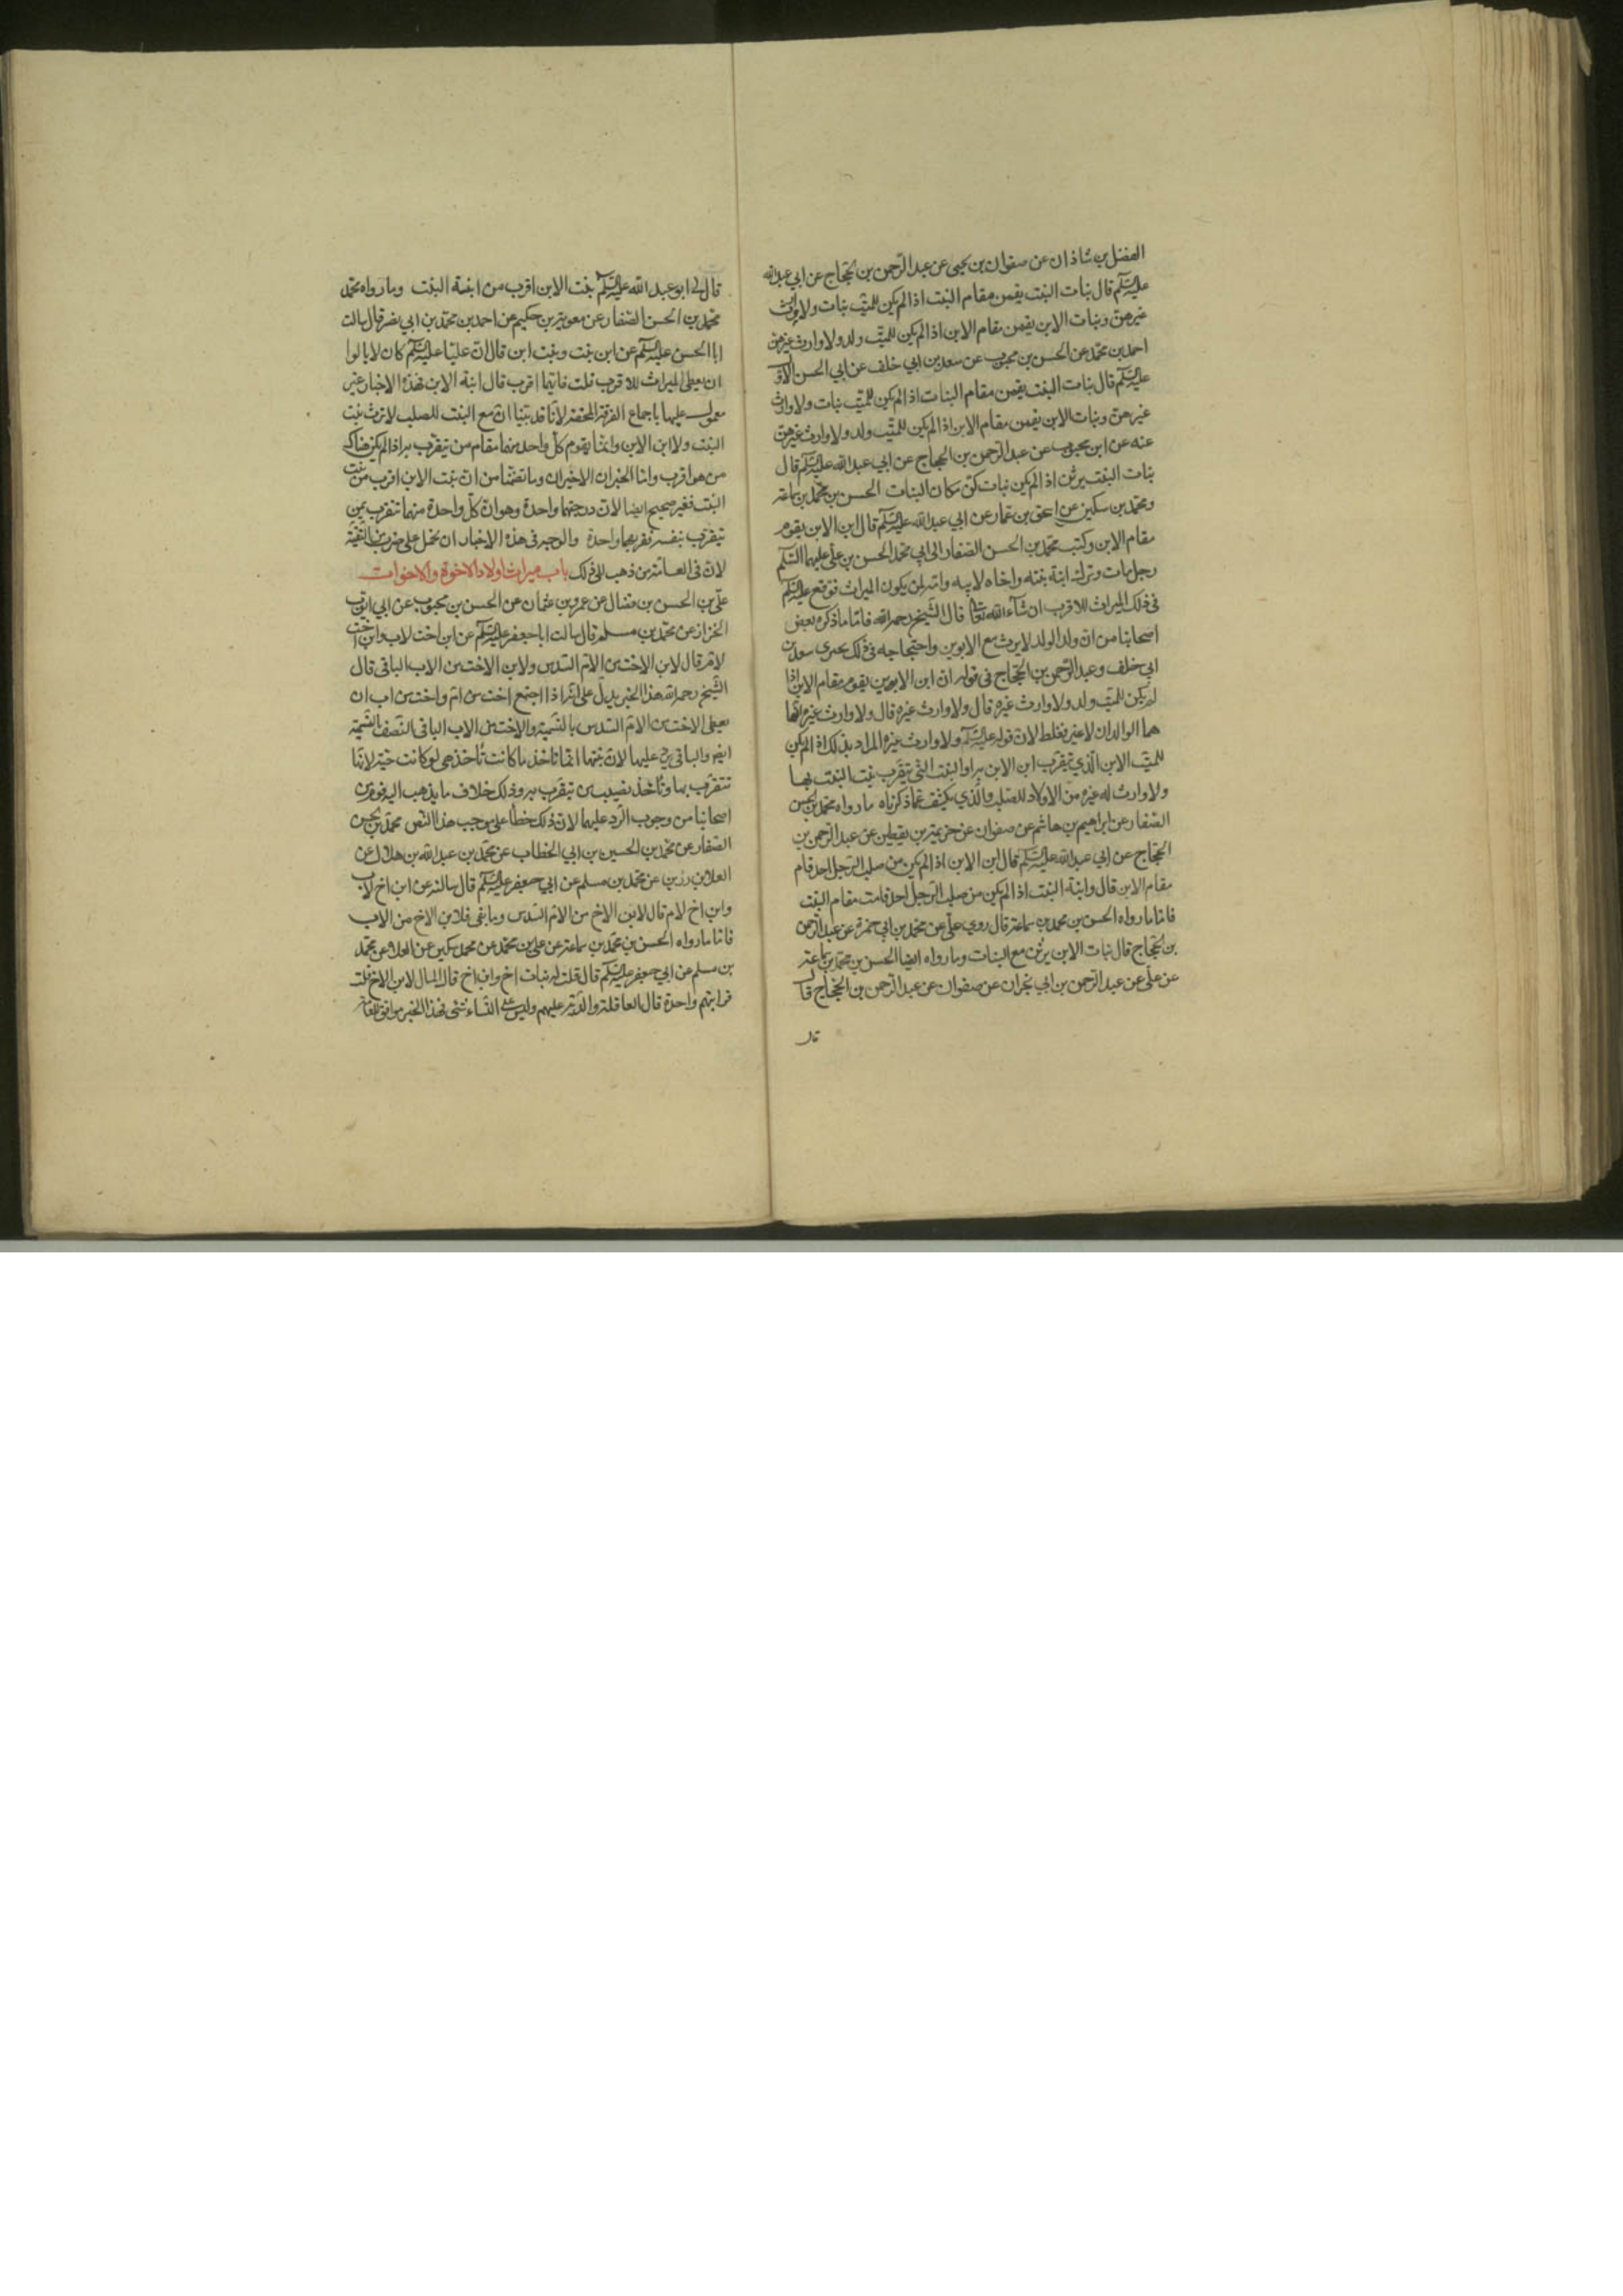 الفضل بن شاذان عن صفوان بن يحيى عن عبد الرحمن بن الحجاج عن ابي عبد الله
عليه السلم قال بنات البنت يقمن مقام البنت اذا لم يكن للميت بنات ولا وارث
غيرهن وبنات الابن يقمن مقام الابن اذا لم يكن للميت ولد ولا وارث غيرهن
احمد بن محمد عن الحسن بن محبوب عن سعد بن ابي خلف عن ابي الحسن الاول
عليه السلم قال بنات البنت يقمن مقام البنات اذا لم يكن للميت بنات ولا وارث
غيرهن وبنات الابن يقمن مقام الابن اذا لم يكن للميت ولد ولا وارث غيرهن
عنه عن ابن محبوب عن عبد الرحمن بن الحجاج عن ابي عبد الله عليه السلم قال
بنات البنت يرثن اذا لم يكن بنات كن مكان البنات الحسن بن محمد بن سماعة
ومحمد بن سكين عن اسحق بن عمار عن ابي عبد الله عليه السلم قال ابن الابن يقوم
مقام الابن وكتب محمد بن الحسن الصفار الى ابي محمد الحسن بن علي عليهما السلم
رجل مات وترك ابنة بنته واخاه لابيه وامه لمن يكون الميراث فوقع عليه السلم
في ذلك الميراث للاقرب ان شاء الله تعالى قال الشيخ رحمه الله فاما ما ذكره بعض
اصحابنا من ان ولد الولد لا يرث مع الابوين واحتجاجه في ذلك بخبري سعد بن
ابي خلف وعبد الرحمن بن الحجاج في قوله ان ابن الابن يقوم مقام الابن اذا
لم يكن للميت ولد ولا وارث غيره قال ولا وارث غيره قال ولا وارث غيره انما
هما الوالدان لا غير فغلط لان قوله عليه السلم ولا وارث غيره المراد بذلك اذا لم يكن
للميت الابن الذي يتقرب ابن الابن به او البنت التي يتقرب بنت البنت بها
ولا وارث له غيره من الاولاد للصلب والذي يكشف عما ذكرناه ما رواه محمد بن الحسن
الصفار عن ابراهيم بن هاشم عن صفوان عن خزيمة بن يقطين عن عبد الرحمن بن
الحجاج عن ابي عبد الله عليه السلم قال ابن الابن اذا لم يكن من صلب الرجل احد قام
مقام الابن قال وابنة البنت اذا لم يكن من صلب الرجل احد قامت مقام البنت
فاما ما رواه الحسن بن محمد بن سماعة قال روى علي عن محمد بن ابي حمزة عن عبد الرحمن
بن الحجاج قال بنات الابن يرثن مع البنات وما رواه ايضا الحسن بن محمد بن سماعة
عن علي عن عبد الرحمن بن ابي نجران عن صفوان عن عبد الرحمن بن الحجاج قال
قال
قال لي ابو عبد الله عليه السلم بنت الابن اقرب من ابنة البنت وما رواه محمد
محمد بن الحسن الصفار عن معوية بن حكيم عن احمد بن محمد بن ابي نصر قال سالت
ابا الحسن عليه السلم عن ابن بنت وبنت ابن قال ان عليا عليه السلم كان لا يالوا
ان يعطي الميراث للاقرب قلت فايهما اقرب قال ابنة الابن فهذه الاخبار غير
معمول عليها باجماع الفرقة المحقة لانا قد بينا ان مع البنت للصلب لا ترث بنت
البنت ولا ابن الابن وانما يقوم كل واحد منهما مقام من يتقرب به اذا لم يكن هناك
من هو اقرب واما الخبران الاخيران وما تضمنا من ان بنت الابن اقرب من بنت
البنت فغير صحيح ايضا لان درجتهما واحدة وهو ان كل واحدة منهما تتقرب بمن
يتقرب بنفسه تقربهما واحدة والوجه في هذه الاخبار ان تحمل على ضرب من التقية
لان في العامة من ذهب الى ذلك باب ميراث اولاد الاخوة والاخوات
علي بن الحسن بن فضال عن عمرو بن عثمان عن الحسن بن محبوب عن ابي ايوب
الخزاز عن محمد بن مسلم قال سالت ابا جعفر عليه السلم عن ابن اخت لاب وابن اخت
لام قال لابن الاخت من الام السدس ولابن الاخت من الاب الباقي قال
الشيخ رحمه الله هذا الخبر يدل على انه اذا اجتمع اخت من ام واخت من اب ان
يعطى الاخت من الام السدس بالتسمية والاخت من الاب الباقي النصف بالتسمية
ايضا والباقي يرد عليها لان بنتها انما تاخذ ما كانت تاخذ هي لو كانت حية لانها
تتقرب بها وتاخذ نصيب من تتقرب به وذلك خلاف ما يذهب اليه قوم من
اصحابنا من وجوب الرد عليهما لان ذلك خطا على موجب هذا النص محمد بن الحسن
الصفار عن محمد بن الحسين بن ابي الخطاب عن محمد بن عبد الله بن هلال عن
العلا بن رزين عن محمد بن مسلم عن ابي جعفر عليه السلم قال سالته عن ابن اخ لاب
وابن اخ لام قال لابن الاخ من الام السدس وما بقى فلابن الاخ من الاب
فاما ما رواه الحسن بن محمد بن سماعة عن علي بن محمد عن محمد سكين عن العلا عن محمد
بن مسلم عن ابي جعفر عليه السلم قال قلت له بنات اخ وابن اخ قال المال لابن الاخ قلت
قرابتهم واحدة قال العاقلة والدية عليهم وليس على النساء شئ فهذا الخبر موافق للعامة